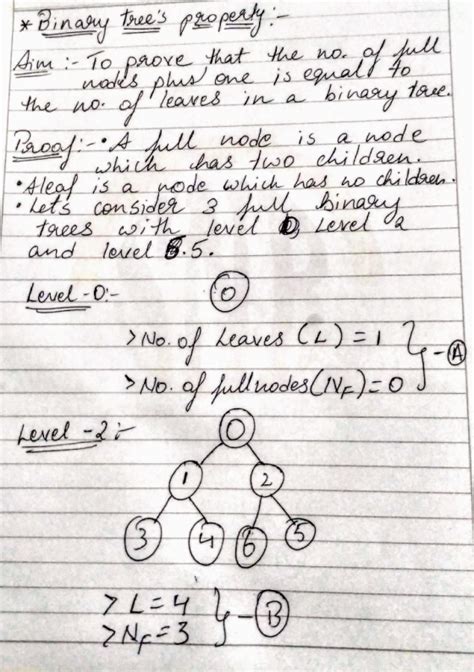 * Binary tree's property:-
Aim :- To prove that the no. of full
nodes plus one is equal to
the no. of leaves in a binary tree.
Proof:- • A full node is a node
which has two children.
• A leaf is a node which has no children.
• Let's consider 3 full binary
trees with level 0, Level 2
and level 5.
Level-0:-
0
> No. of Leaves (L) = 1
> No. of full nodes (NF) = 0
} - A
Level -2:-
0
1 2
3 4 6 5
> L = 4
> NF = 3
} - B